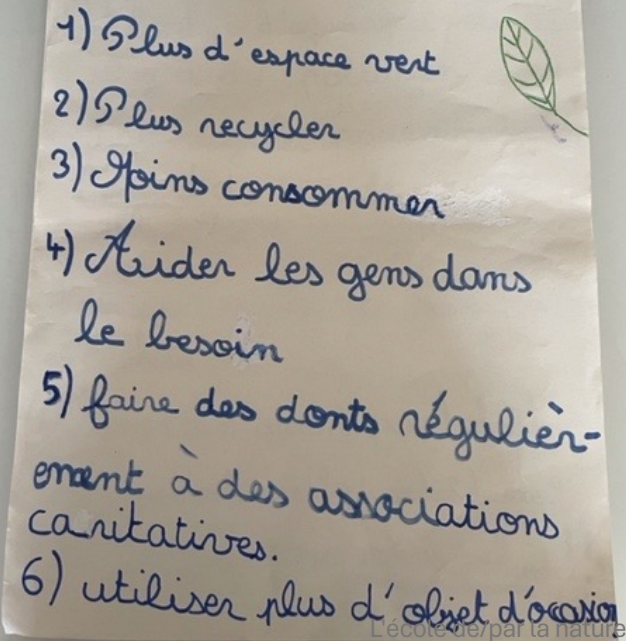 1) Plus d'espace vert
2) Plus recycler
3) Moins consommer
4) Aider les gens dans
le besoin
5) faire des donts régulièr-
ement à des associations
caritatives.
6) utiliser plus d'objet d'occasion
L'école de/par la nature